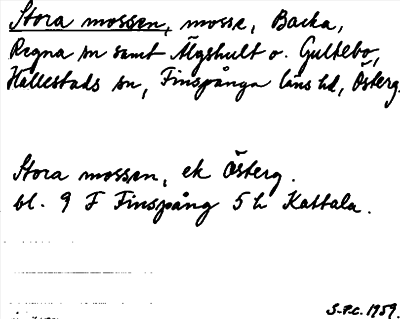 Stora mossen, mosse, Backa,
Regna sn samt Älgshult o. Gultebo,
Hällestads sn, Finspånga läns hd, Österg.
Stora mossen, ek Österg.
bl. 9 F Finspång 5 h Kattala.
S.P.C. 1959.